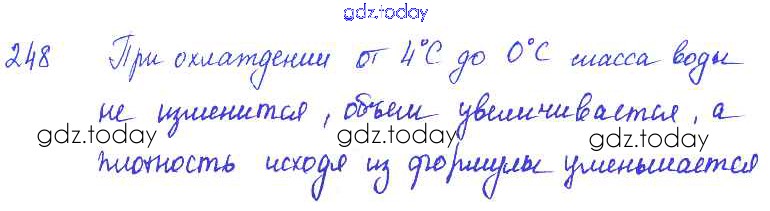 gdz.today
248 При охлаждении от 4°С до 0°С масса воды
не изменится, объем увеличивается, а
gdz.today gdz.today gdz.today
плотность исходя из формулы уменьшается